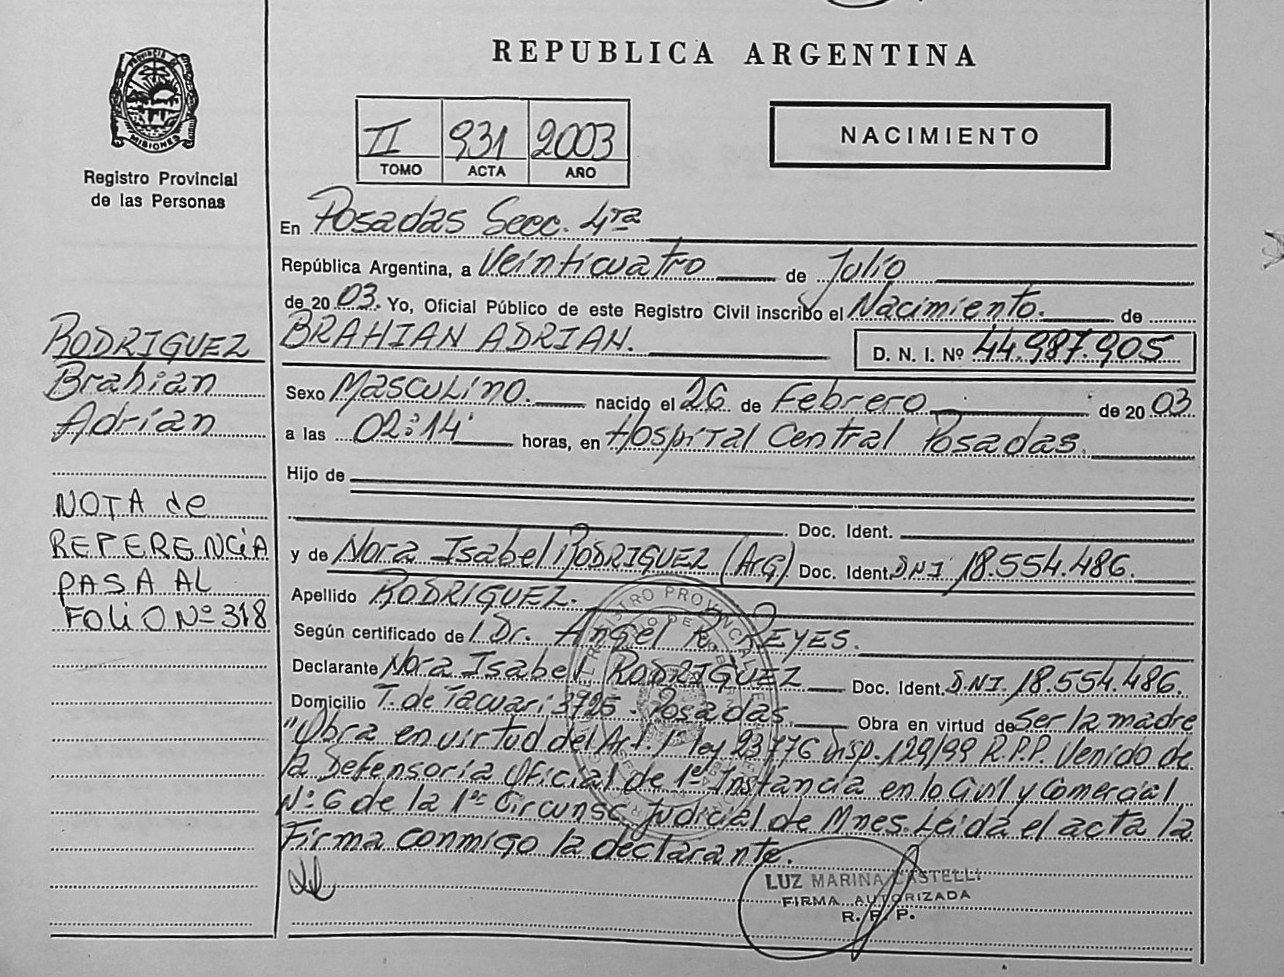 REPUBLICA ARGENTINA
PROVINCIA DE
MISIONES
Registro Provincial
de las Personas
II 931 2003
TOMO ACTA AÑO
NACIMIENTO
En Posadas Secc. 4ra
República Argentina, a Veinticuatro de Julio
de 20 03. Yo, Oficial Público de este Registro Civil inscribo el Nacimiento. de
BRAHIAN ADRIAN. D. N. I. Nº 44.987.905
RODRIGUEZ
Brahian
Adrian
Sexo Masculino. nacido el 26 de Febrero de 20 03
a las 02:14 horas, en Hospital Central Posadas.
Hijo de
Doc. Ident.
y de Nora Isabel RODRIGUEZ (Arg) Doc. Ident. DNI 18.554.486.
Apellido RODRIGUEZ.
Según certificado de Dr. Angel R. REYES.
Declarante Nora Isabel RODRIGUEZ Doc. Ident. DNI. 18.554.486.
Domicilio T. de Tacuari 3725 - Posadas Obra en virtud de Ser la madre
"Obra en virtud del Art. 1º ley 23776 Disp. 129/99 R.P.P. Venido de
la Defensoría Oficial de 1ra Instancia en lo Civil y Comercial
Nº 6 de la 1ra Circunsc. Judicial de Mnes. Leida el acta la
Firma conmigo la declarante.
NOTA de
REFERENCIA
PASA AL
FOLIO Nº 318
REGISTRO PROVINCIAL DE
LUZ MARINA CASTELLI
FIRMA AUTORIZADA
R. P. P.